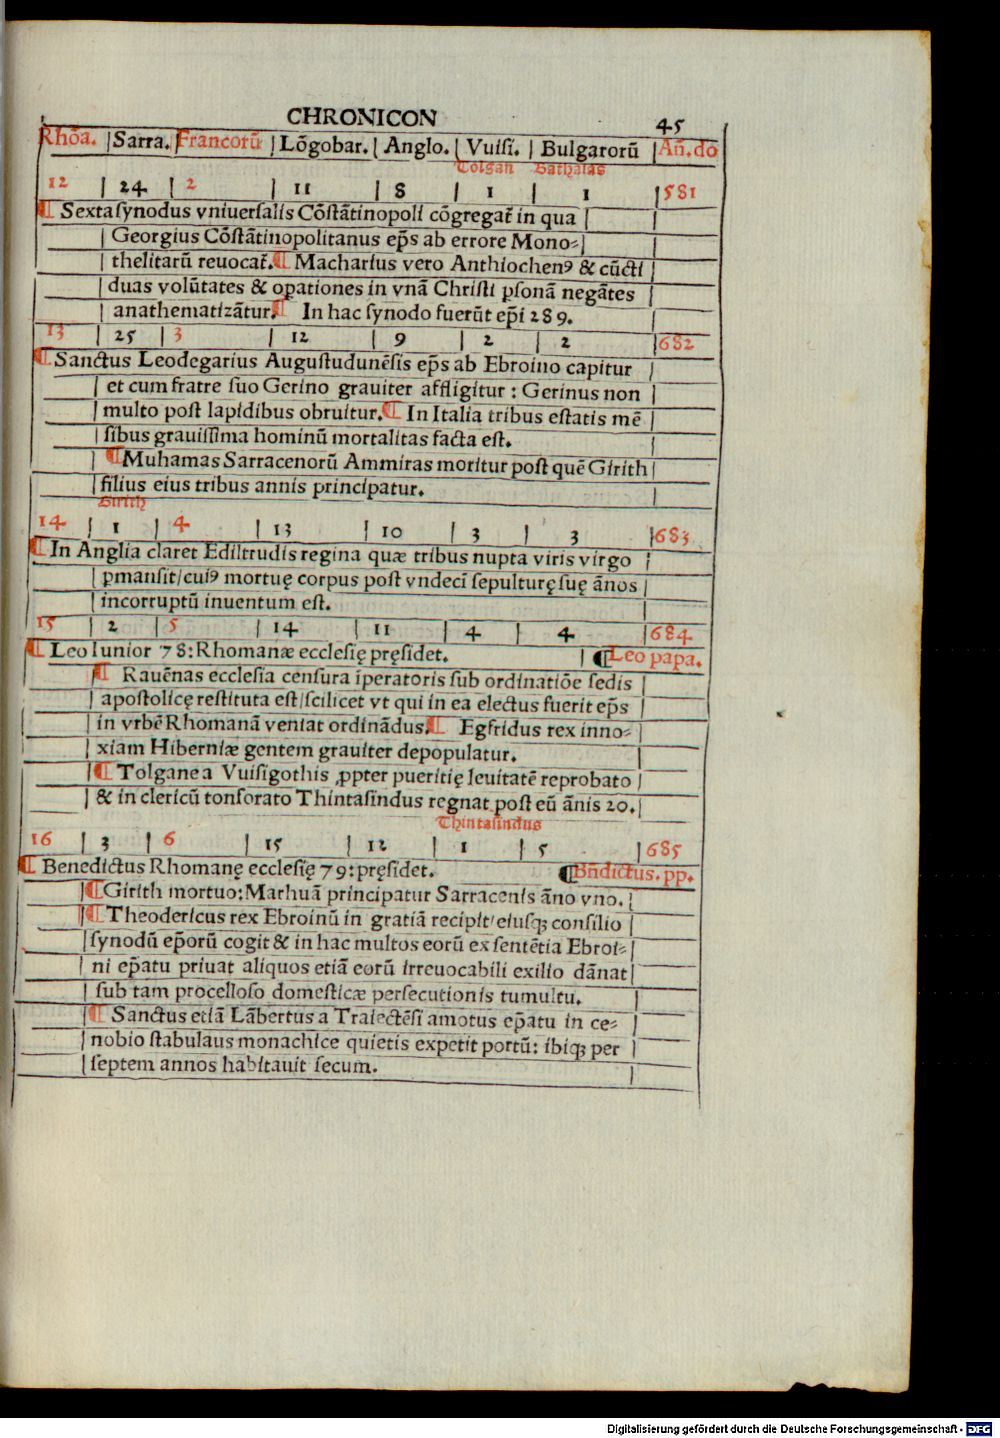 CHRONICON
45
Rhōa. Sarra. Francorū Lōgobar. Anglo. Vuisi. Bulgarorū Añ. do
Tolgan Bathaias
12 24 2 11 8 1 1 581
¶ Sexta synodus vniuersalis Cōstātinopoli cōgregat̄ in qua
Georgius Cōstātinopolitanus ep̄s ab errore Mono⸗
thelitarū reuocat̄. ¶ Macharius vero Anthiochenꝰ & cūcti
duas volūtates & oꝑationes in vnā Christi ꝑsonā negātes
anathematizātur. ¶ In hac synodo fuerūt ep̄i 289.
13 25 3 12 9 2 2 682
¶ Sanctus Leodegarius Augustudunēsis ep̄s ab Ebroino capitur
et cum fratre suo Gerino grauiter affligitur : Gerinus non
multo post lapidibus obruitur. ¶ In Italia tribus estatis mē
sibus grauissima hominū mortalitas facta est.
¶ Muhamas Sarracenorū Ammiras moritur post quē Girith
filius eius tribus annis principatur.
Girith
14 1 4 13 10 3 3 683
¶ In Anglia claret Ediltrudis regina quæ tribus nupta viris virgo
ꝑmansit/cuiꝰ mortuę corpus post vndeci̅ sepulturę suę ānos
incorruptū inuentum est.
15 2 5 14 11 4 4 684
¶ Leo Iunior 78: Rhomanæ ecclesię pręsidet. ¶ Leo papa.
¶ Rauēnas ecclesia censura i̅peratoris sub ordinatiōe sedis
apostolicę restituta est/scilicet vt qui in ea electus fuerit ep̄s
in vrbē Rhomanā veniat ordinādus. ¶ Egfridus rex inno⸗
xiam Hiberniæ gentem grauiter depopulatur.
¶ Tolgane a Vuisigothis ꝓpter pueritię leuitatē reprobato
& in clericū tonsorato Thintasindus regnat post eū ānis 20.
Thintasindus
16 3 6 15 12 1 5 685
¶ Benedictus Rhomanę ecclesię 79: pręsidet. ¶ Bñdictus. pp.
¶ Girith mortuo: Marhuā principatur Sarracenis āno vno.
¶ Theodericus rex Ebroinū in gratiā recipit/eiusqꝫ consilio
synodū ep̄orū cogit & in hac multos eorū ex sentētia Ebroi⸗
ni ep̄atu priuat aliquos etiā eorū irreuocabili exilio dānat
sub tam procelloso domesticæ persecutionis tumultu.
¶ Sanctus etiā Lābertus a Traiectēsi amotus ep̄atu in ce⸗
nobio stabulaus monachice quietis expetit portū: ibiqꝫ per
septem annos habitauit secum.
Digitalisierung gefördert durch die Deutsche Forschungsgemeinschaft - DFG